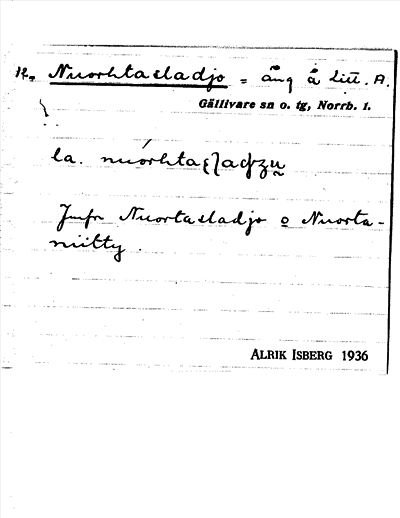 12. Nuorhtasladjo = äng å litt. A.
Gällivare sn o. tg, Norrb. l.
la.
Jmfr Nuortasladjo o Nuorta-
niitty.
ALRIK ISBERG 1936